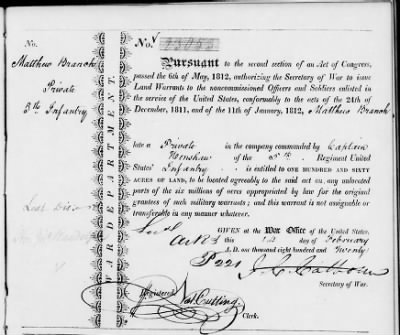 No.
Matthew Branch
Private
5th Infantry
WAR DEPARTMENT
No.
Pursuant to the second section of an Act of Congress,
passed the 6th of May, 1812, authorizing the Secretary of War to issue
Land Warrants to the noncommissioned Officers and Soldiers enlisted in
the service of the United States, conformably to the acts of the 24th of
December, 1811, and of the 11th of January, 1812, Matthew Branch
late a Private in the company commanded by Captain
Henshaw of the 5th Regiment United
States' Infantry is entitled to ONE HUNDRED AND SIXTY
ACRES OF LAND, to be located agreeably to the said act on any unlocated
parts of the six millions of acres appropriated by law for the original
grantees of such military warrants; and this warrant is not assignable
or transferable in any manner whatever.
GIVEN at the War Office of the United States,
this day of February
A. D. one thousand eight hundred and Twenty
J. C. Calhoun
Secretary of War.
Registered
Nat Cutting
Clerk.